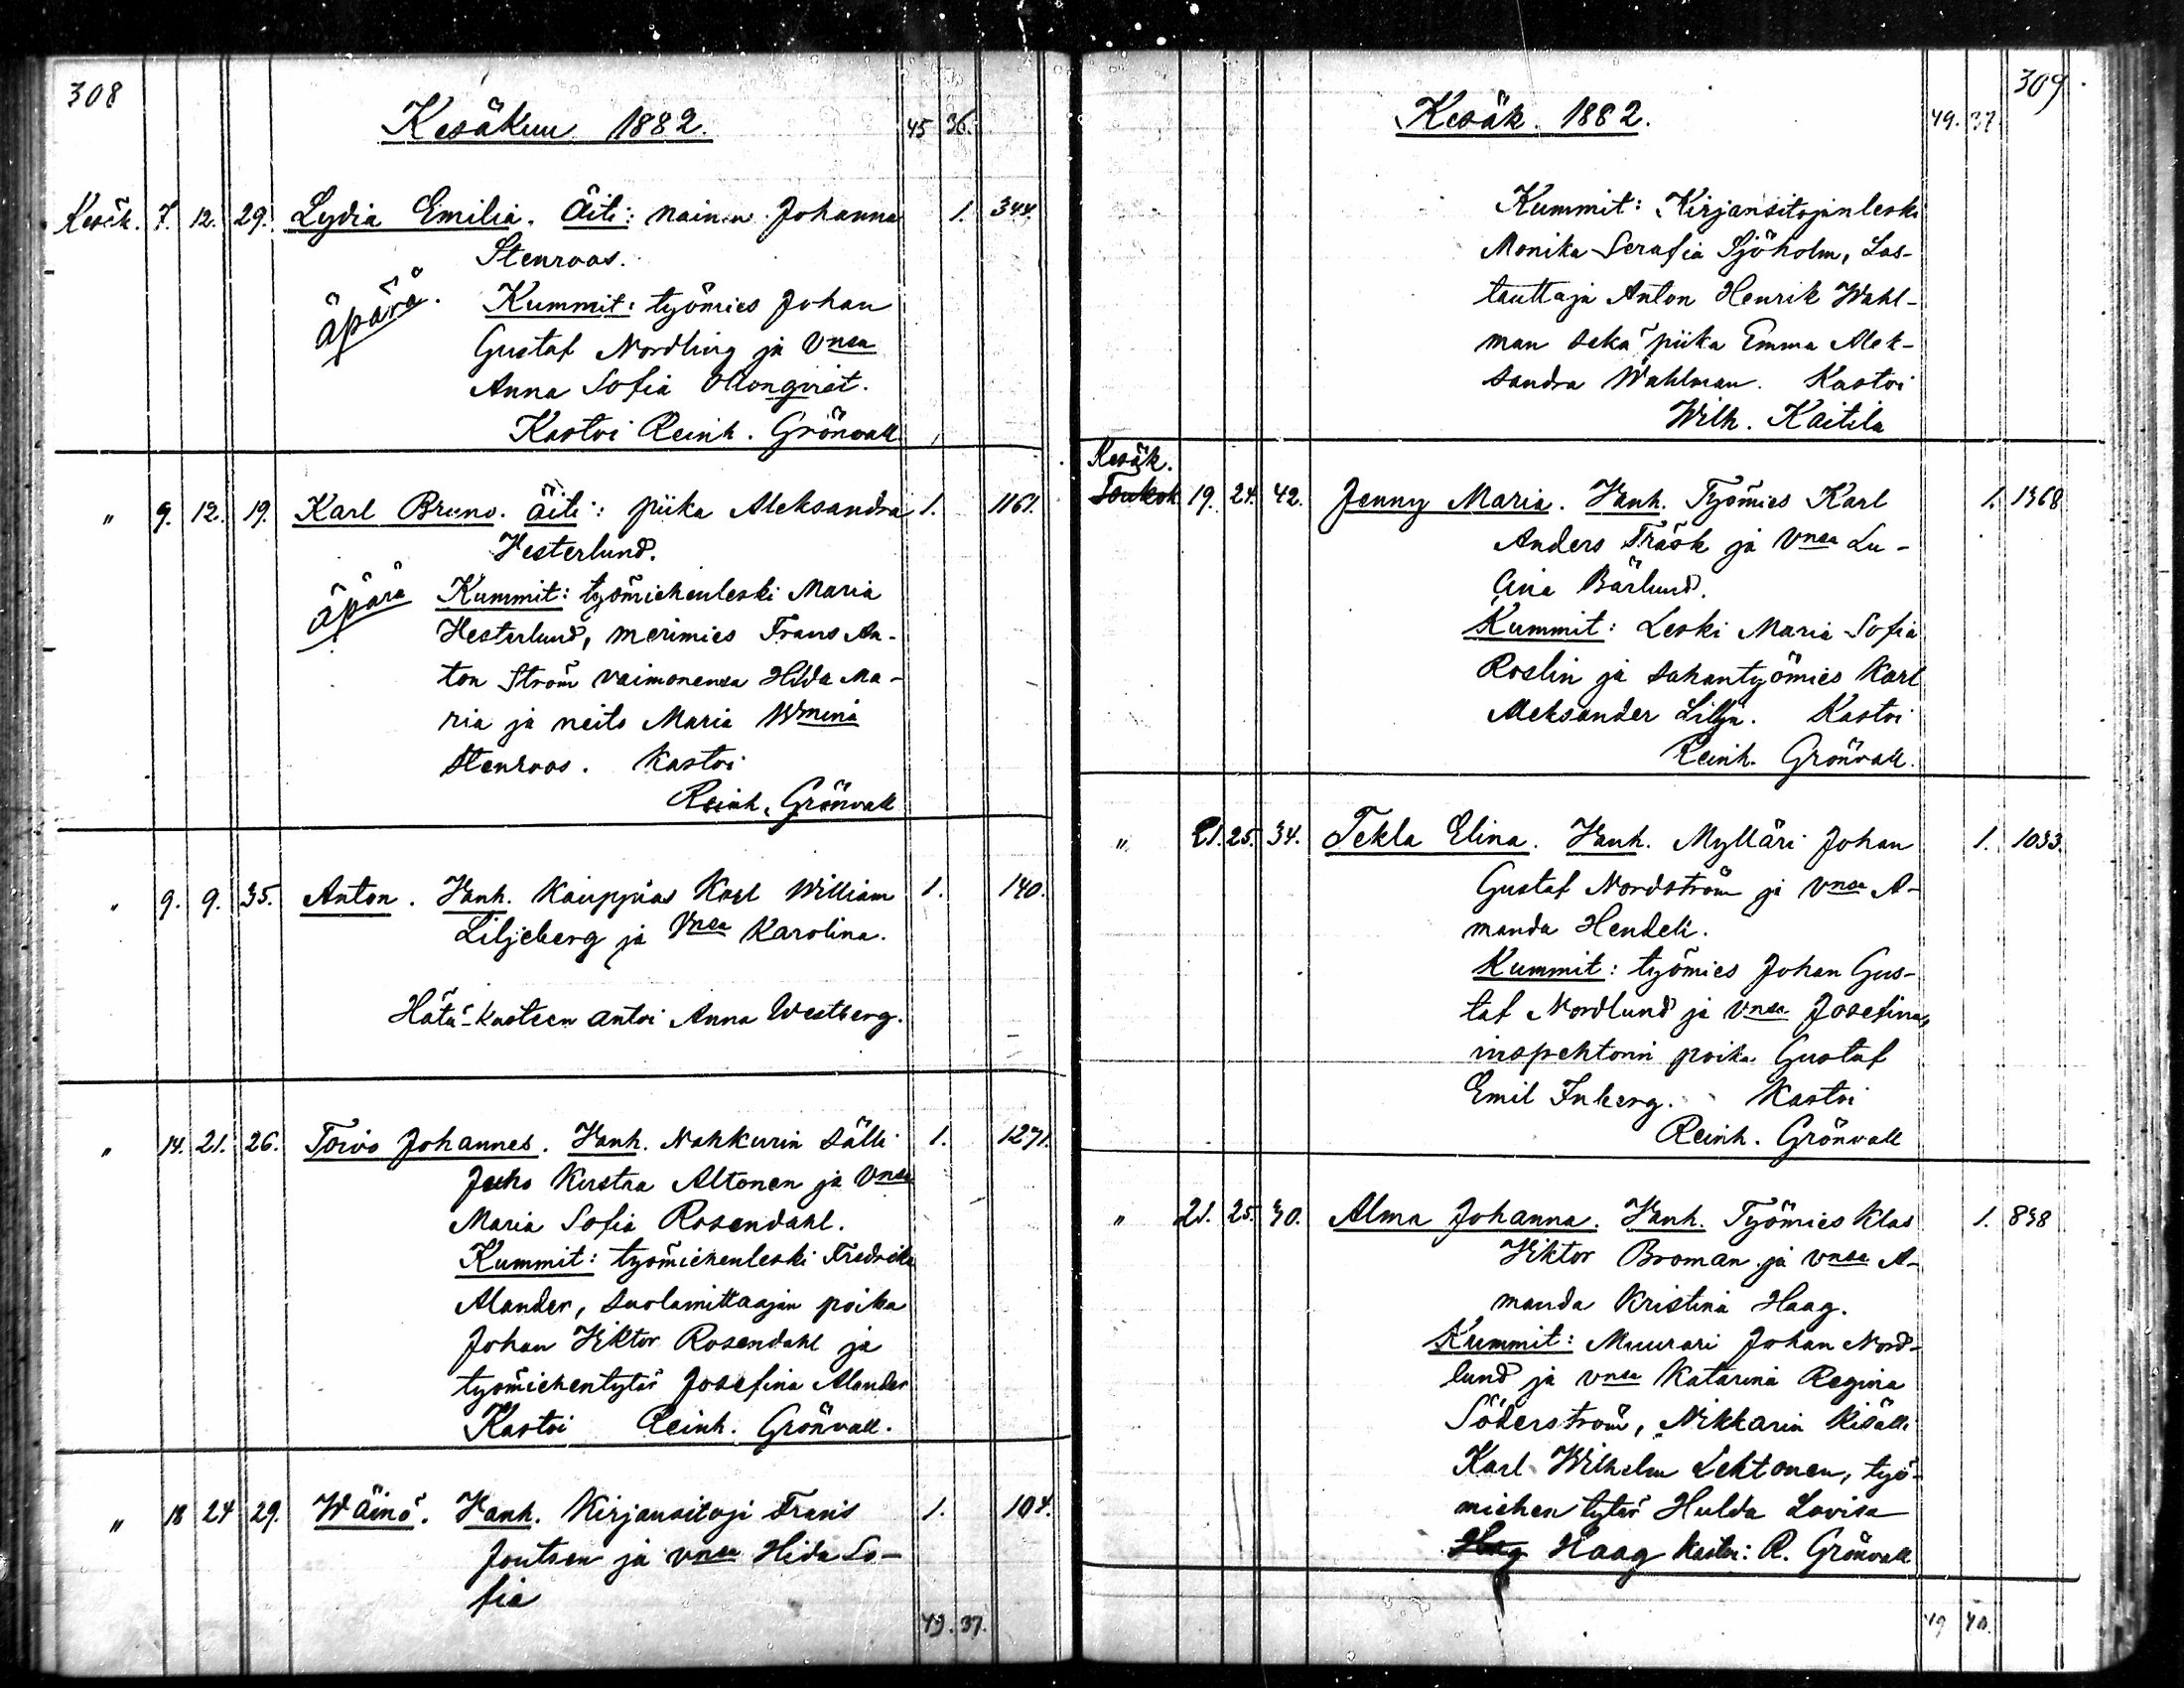 308
Kesäkuu 1882.
45 36.
Kesäk. 7. 12. 29. Lydia Emilia. Äiti: nainen Johanna 1. 344.
Stenroos.
äpärä. Kummit: työmies Johan
Gustaf Nordling ja Vnsa
Anna Sofia
Kastoi Reinh. Grönvall
" 9. 12. 19. Karl Bruno. Äiti: piika Aleksandra 1. 1161.
Hesterlund.
äpärä Kummit: työmiehenleski Maria
Hesterlund, merimies Frans An-
ton Ström vaimonensa Hilda Ma-
ria ja neito Maria Wmina
Stenroos. Kastoi
Reinh. Grönvall
" 9. 9. 35. Anton. Vanh. Kauppias Karl William 1. 140.
Liljeberg ja Vnsa Karolina.
Hätä-kasteen antoi Anna Westberg.
" 14. 21. 26. Toivo Johannes. Vanh. Nahkurin sälli 1. 1271.
Juho Kustaa Altonen ja Vnsa
Maria Sofia Rosendahl.
Kummit: työmiehenleski Fredrika
Alander, suolamittaajan poika
Johan Viktor Rosendahl ja
työmiehentytär Josefina Alander
Kastoi Reinh. Grönvall.
" 18 24 29. Wäinö. Vanh. Kirjansitoji Frans 1. 104.
Joutsen ja vnsa Hida So-
fia
49. 37.
309.
Kesäk. 1882.
49. 37
Kummit: Kirjansitojanleski
Monika Serafia Sjöholm, Las-
tauttaja Anton Henrik Wahl-
man sekä piika Emma Alek-
sandra Wahlman. Kastoi
Wilh. Kaitila
Kesäk.
Toukok 19. 24. 42. Jenny Maria. Vanh. Työmies Karl 1. 1368
Anders Träsk ja Vnsa Lu-
Bärlund.
Kummit: Leski Maria Sofia
Roslin ja sahantyömies Karl
Aleksander Lilja. Kastoi
Reinh. Grönvall.
" 21. 25. 34. Tekla Elina. Vanh. Mylläri Johan 1. 1033.
Gustaf Nordström ja Vnsa A-
manda Hendeli.
Kummit: työmies Johan Gus-
taf Nordlund ja Vnsa Josefina,
inspehtorin poika Gustaf
Emil Inberg. Kastoi
Reinh. Grönvall
" 21. 25. 30. Alma Johanna. Vanh. Työmies Klas 1. 838
Viktor Broman ja vnsa A-
manda Kristina Haag.
Kummit: Muurari Johan Nord-
lund ja vnsa Katarina Regina
Söderström, Nikkarin kisälli
Karl Wilhelm Lehtonen, työ-
miehen tytär Hulda Lovisa
Hag Haag Kastoi: R. Grönvall
49 40.